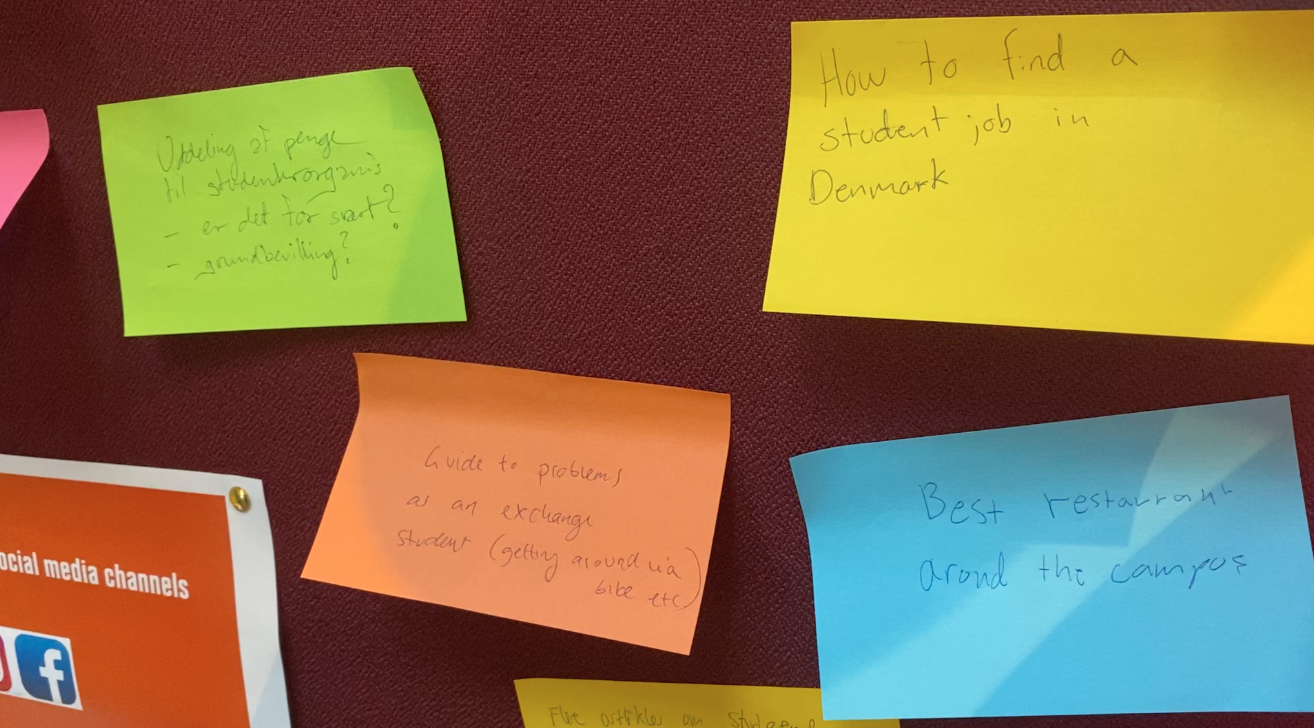 Uddeling af penge
til studenterorganis
- er det for svært?
- grundbevilling?
How to find a
student job in
Denmark
Guide to problems
as an exchange
student (getting around via
bike etc)
Best restaurant
arond the campus
ocial media channels
f
Flere artikler om